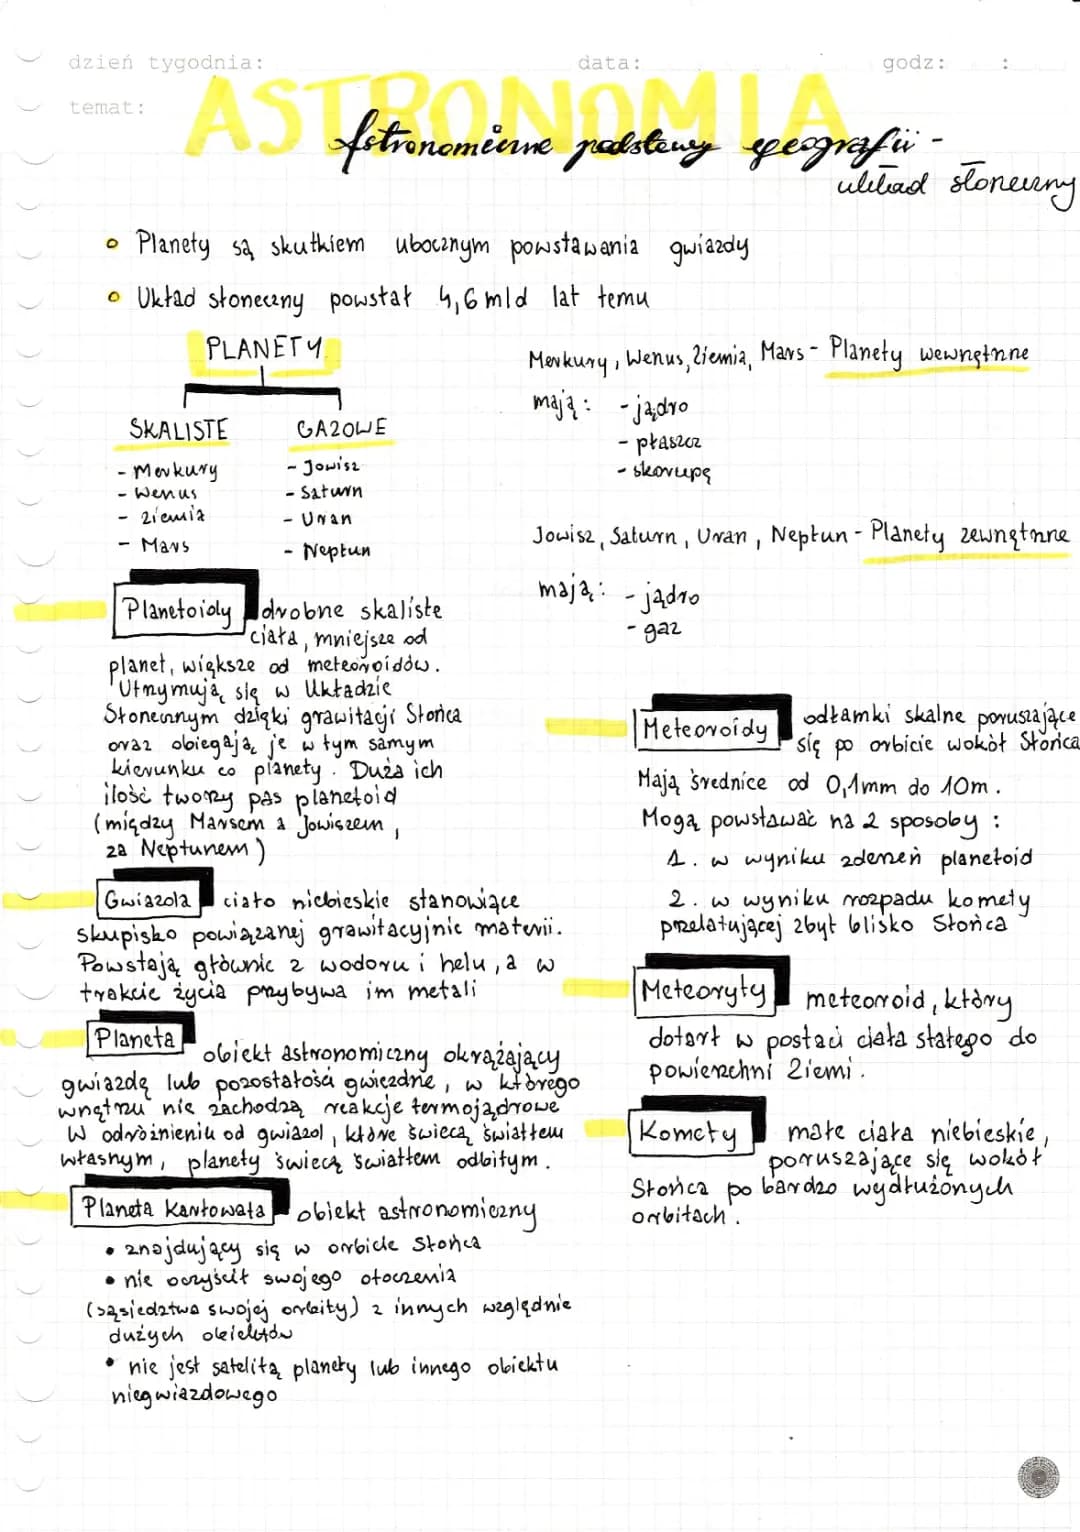 dzień tygodnia: data: godz: :
temat:
ASTRONOMIA
Astronomiczne podstawy geografii -
układ słoneczny
Planety są skutkiem ubocznym powstawania gwiazdy
Układ słoneczny powstał 4,6 mld lat temu
PLANETY
SKALISTE
- Merkury
- Wenus
- Ziemia
- Mars
GAZOWE
- Jowisz
- Saturn
- Uran
- Neptun
Merkury, Wenus, Ziemia, Mars - Planety wewnętrzne
mają: - jądro
- płaszcz
- skorupę
Jowisz, Saturn, Uran, Neptun - Planety zewnętrzne
mają: - jądro
- gaz
Planetoidy drobne skaliste
ciała, mniejsze od
planet, większe od meteoroidów.
Utrzymują się w Układzie
Słonecznym dzięki grawitacji Słońca
oraz obiegają je w tym samym
kierunku co planety. Duża ich
ilość tworzy pas planetoid
(między Marsem a Jowiszem,
za Neptunem)
Gwiazda ciało niebieskie stanowiące
skupisko powiązanej grawitacyjnie materii.
Powstają głównie z wodoru i helu, a w
trakcie życia przybywa im metali
Planeta obiekt astronomiczny okrążający
gwiazdę lub pozostałości gwiezdne, w którego
wnętrzu nie zachodzą reakcje termojądrowe
W odróżnieniu od gwiazd, które świecą światłem
własnym, planety świecą światłem odbitym.
Planeta karłowata obiekt astronomiczny
• znajdujący się w orbicie Słońca
• nie oczyścił swojego otoczenia
(sąsiedztwa swojej orbity) z innych względnie
dużych obiektów
• nie jest satelitą planety lub innego obiektu
niegwiazdowego
Meteoroidy odłamki skalne poruszające
się po orbicie wokół Słońca
Mają średnice od 0,1mm do 10m.
Mogą powstawać na 2 sposoby:
1. w wyniku zderzeń planetoid
2. w wyniku rozpadu komety
przelatującej zbyt blisko Słońca
Meteoryty meteoroid, który
dotarł w postaci ciała stałego do
powierzchni Ziemi.
Komety małe ciała niebieskie,
poruszające się wokół
Słońca po bardzo wydłużonych
orbitach.